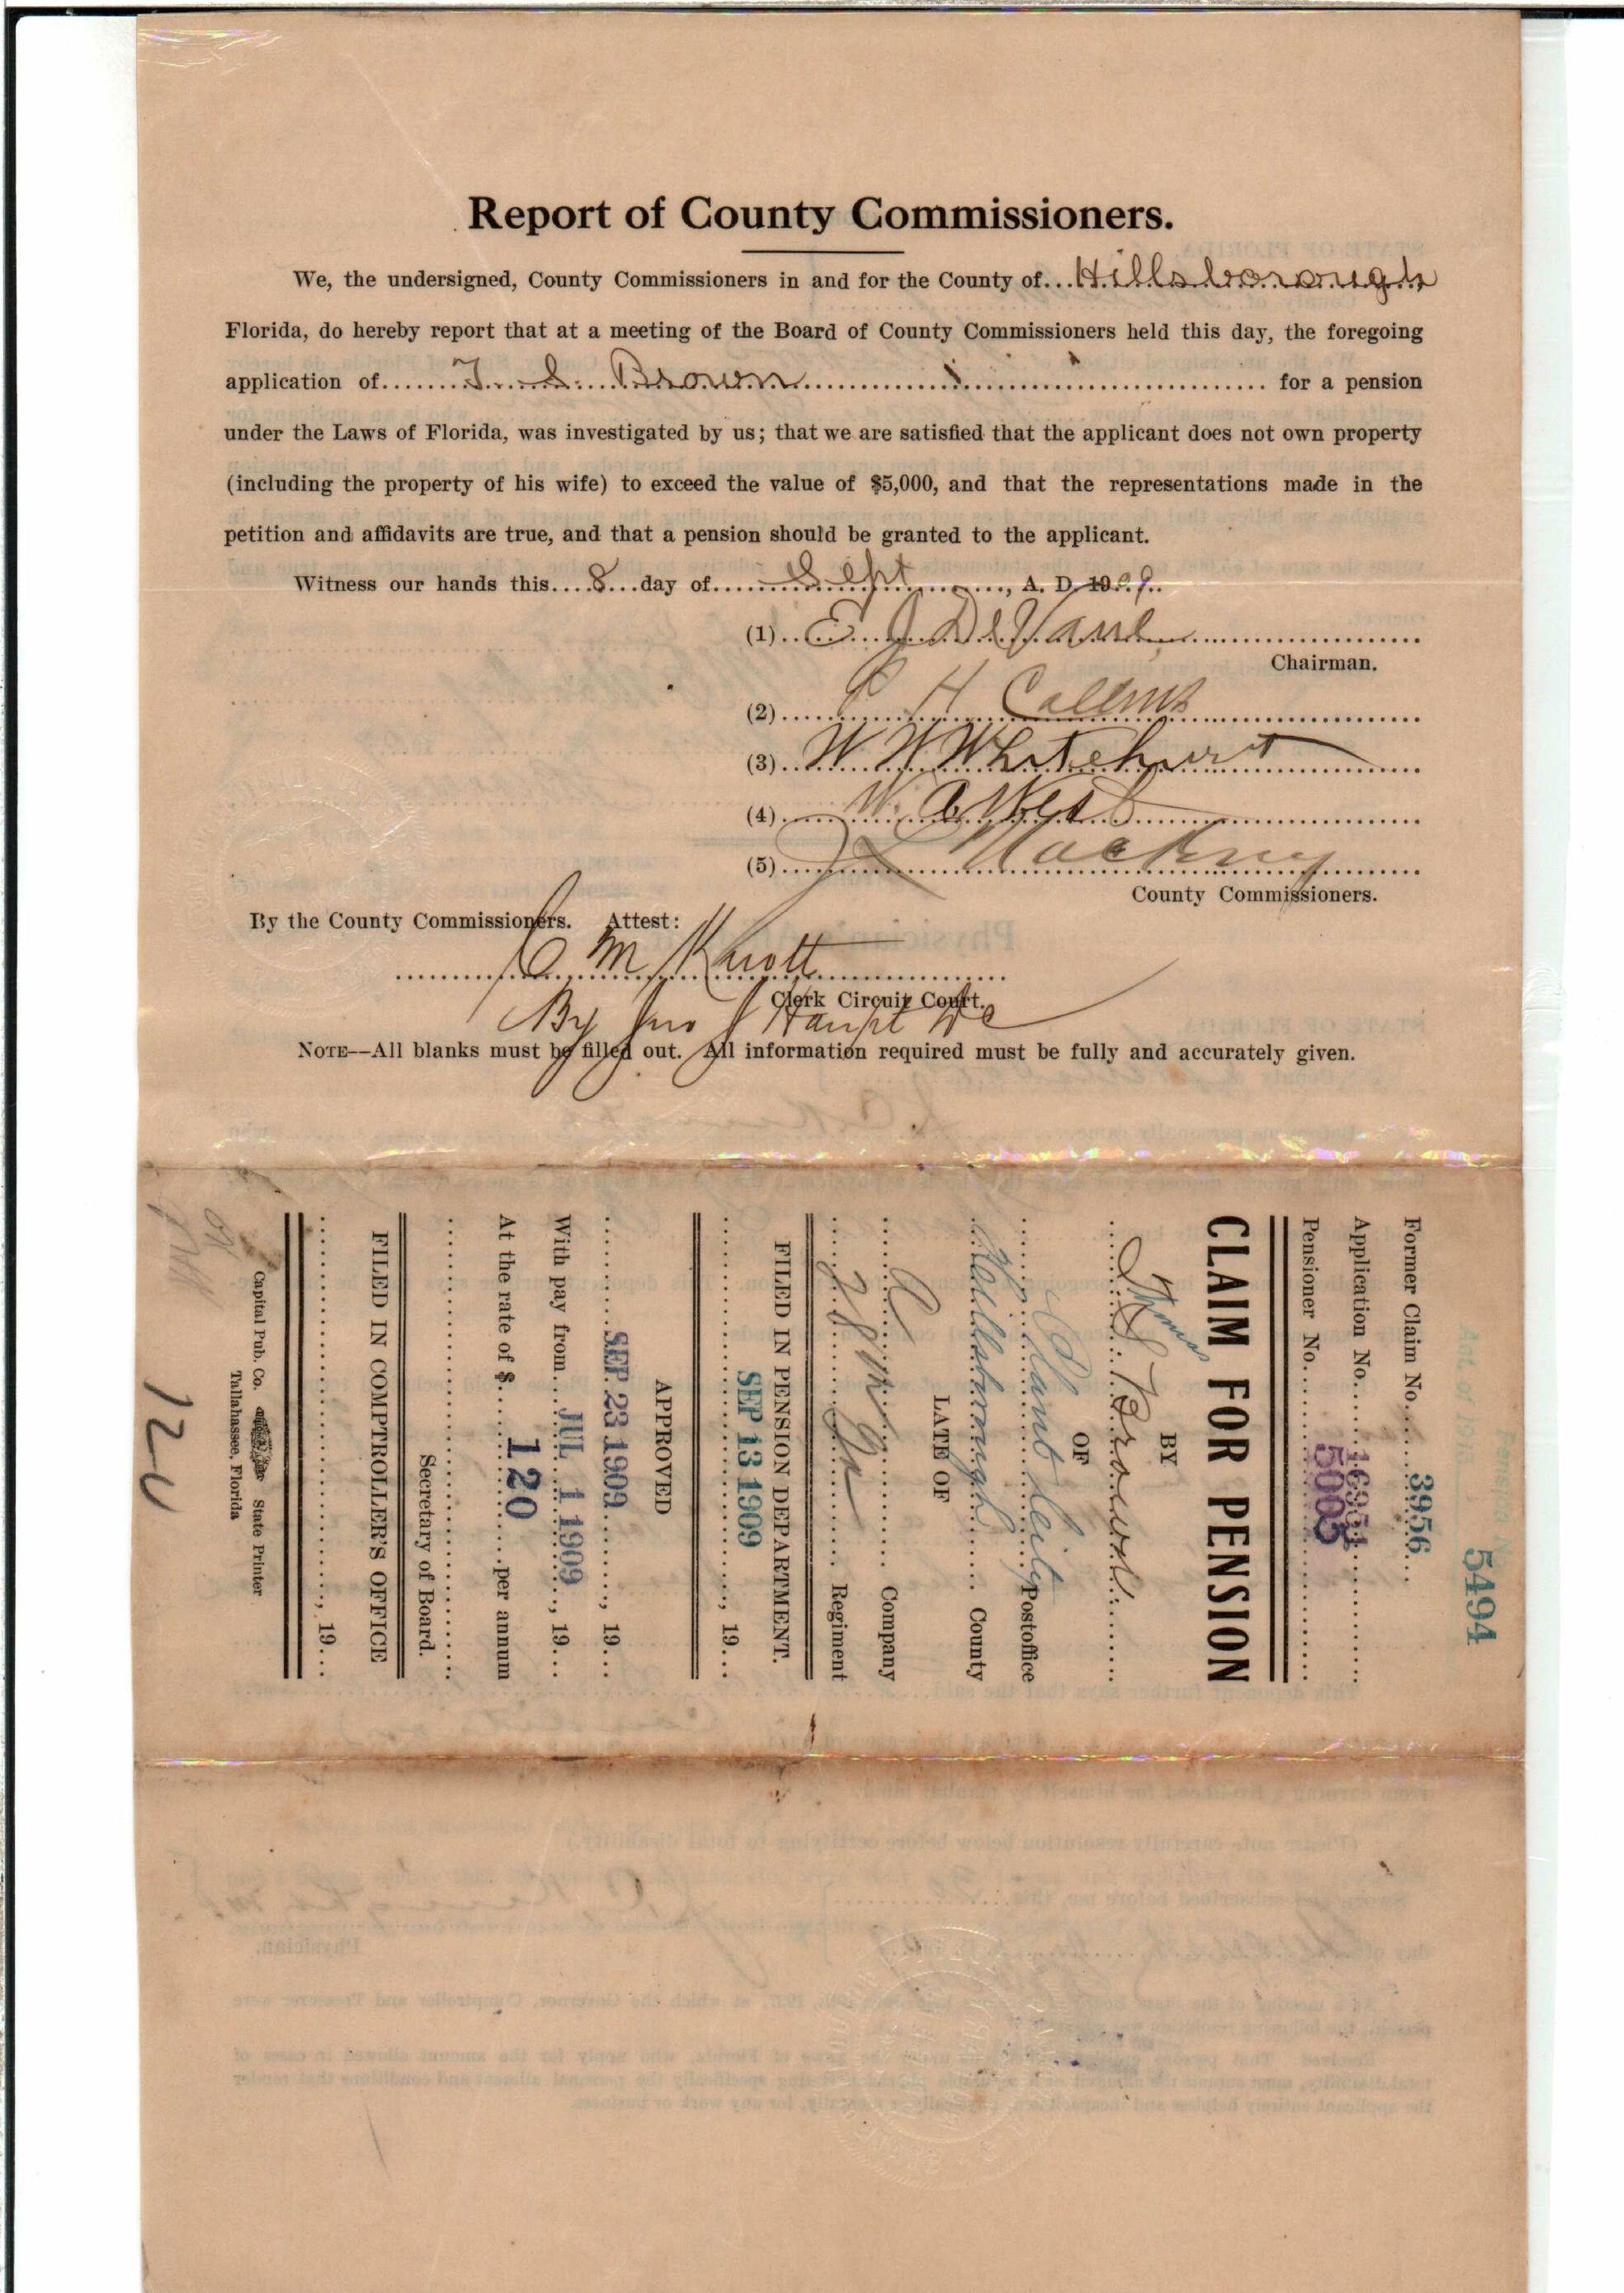 Report of County Commissioners.
We, the undersigned, County Commissioners in and for the County of...Hillsborough
Florida, do hereby report that at a meeting of the Board of County Commissioners held this day, the foregoing
application of.......T. S. Brown............ for a pension
under the Laws of Florida, was investigated by us; that we are satisfied that the applicant does not own property
(including the property of his wife) to exceed the value of $5,000, and that the representations made in the
petition and affidavits are true, and that a pension should be granted to the applicant.
Witness our hands this....8...day of......Sept......, A. D. 1909..
(1)..E J DeVane
Chairman.
(2).... H Collins
(3)..W W Whitehurst
(4)....W. A West
(5)....
County Commissioners.
By the County Commissioners. Attest:
M Knott
Clerk Circuit Court.
By Jno J Haupt DC
NOTE--All blanks must be filled out. All information required must be fully and accurately given.
5494
Former Claim No......3956....
Application No.....16951.....
Pensioner No......5003.....
CLAIM FOR PENSION
BY
Thomas
S. Brown
OF
Plant City Postoffice
Hillsborough County
LATE OF
C Company
28th Ga Regiment
FILED IN PENSION DEPARTMENT.
SEP 13 1909, 19...
APPROVED
SEP 23 1909, 19...
With pay from...JUL 1 1909, 19...
At the rate of $....120....per annum
Secretary of Board.
FILED IN COMPTROLLER'S OFFICE
, 19...
Capital Pub. Co. State Printer
Tallahassee, Florida
OK
120